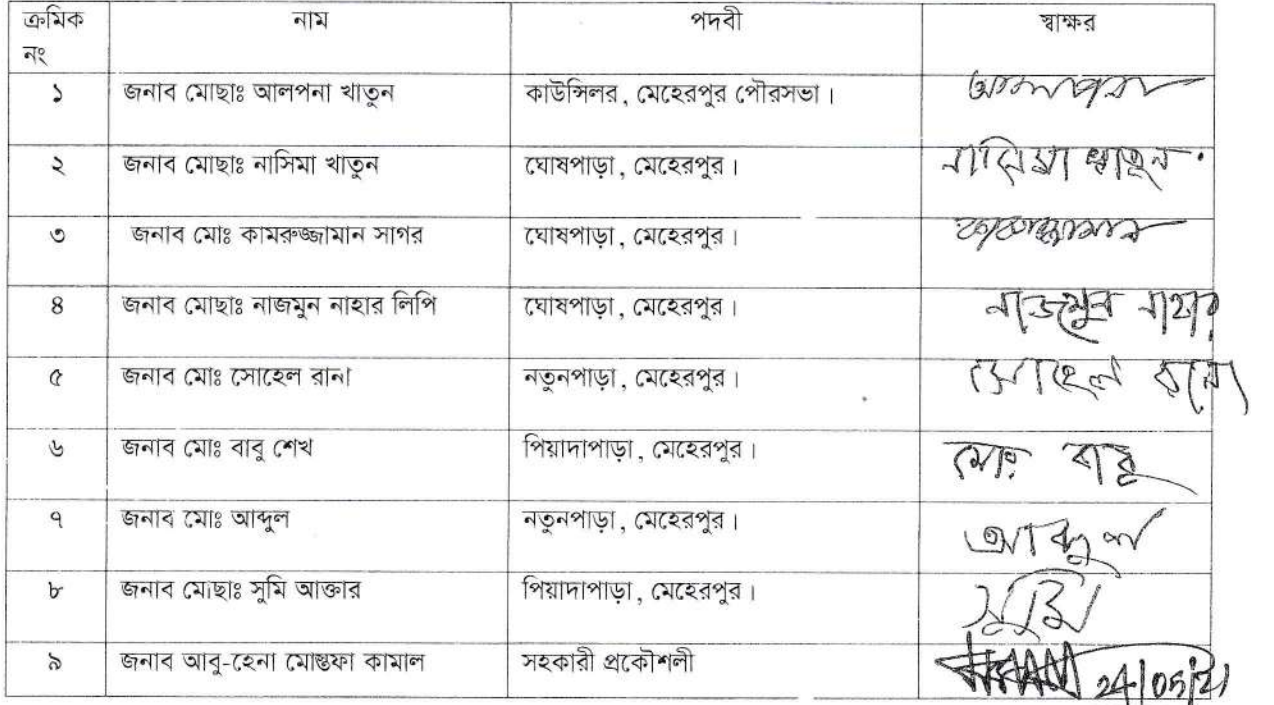 ক্রমিক নং নাম পদবী স্বাক্ষর
১ জনাব মোছাঃ আলপনা খাতুন কাউন্সিলর, মেহেরপুর পৌরসভা। আলপনা
২ জনাব মোছাঃ নাসিমা খাতুন ঘোষপাড়া, মেহেরপুর। নাসিমা খাতুন
৩ জনাব মোঃ কামরুজ্জামান সাগর ঘোষপাড়া, মেহেরপুর। কামরুজ্জামান
৪ জনাব মোছাঃ নাজমুন নাহার লিপি ঘোষপাড়া, মেহেরপুর। নাজমুন নাহার
৫ জনাব মোঃ সোহেল রানা নতুনপাড়া, মেহেরপুর। সোহেল রানা
৬ জনাব মোঃ বাবু শেখ পিয়াদাপাড়া, মেহেরপুর। মোঃ বাবু
৭ জনাব মোঃ আব্দুল নতুনপাড়া, মেহেরপুর। আব্দুল
৮ জনাব মোছাঃ সুমি আক্তার পিয়াদাপাড়া, মেহেরপুর। সুমি
৯ জনাব আবু-হেনা মোস্তফা কামাল সহকারী প্রকৌশলী 24/05/21